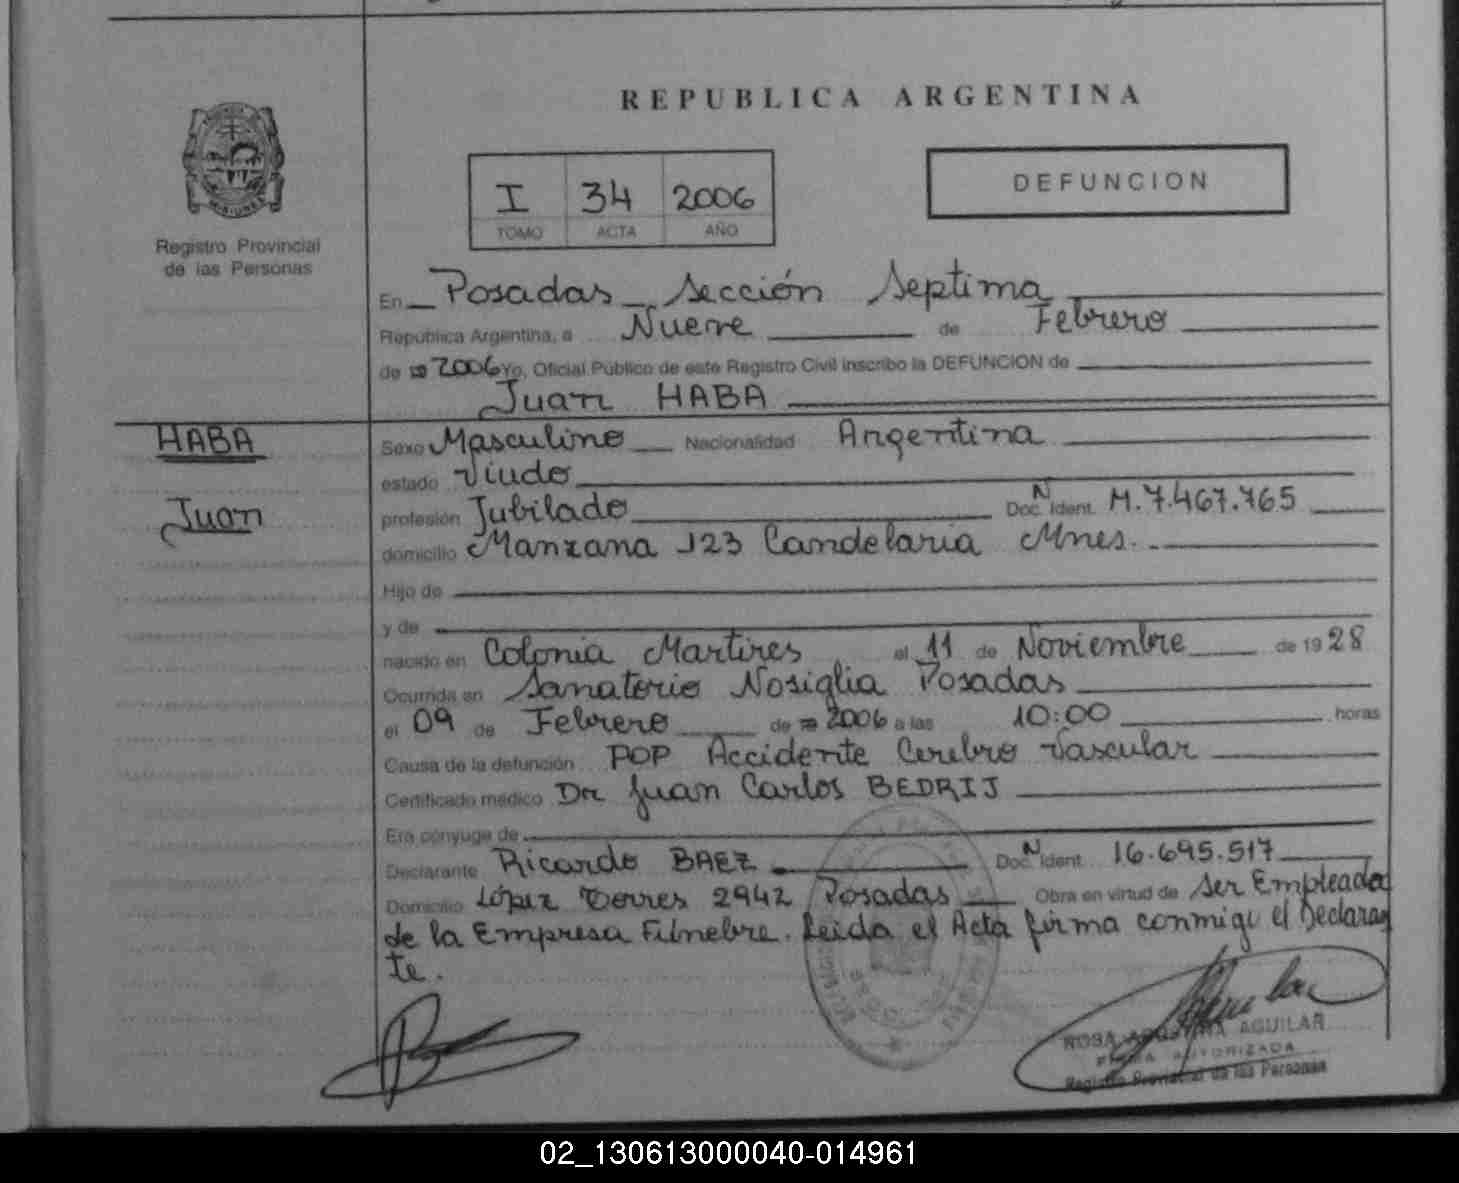 REPUBLICA ARGENTINA
MISIONES
Registro Provincial
de las Personas
I 34 2006
TOMO ACTA AÑO
DEFUNCION
En Posadas Sección Septima
República Argentina, a Nueve de Febrero
de 2006 Yo, Oficial Público de este Registro Civil inscribo la DEFUNCION de
Juan HABA
HABA
Juan
Sexo Masculino Nacionalidad Argentina
estado Viudo
profesión Jubilado Doc. N Ident. M.7.467.765
domicilio Manzana 123 Candelaria Mnes.
Hijo de
y de
nacido en Colonia Martires el 11 de Noviembre de 1928
Ocurrida en Sanatorio Nosiglia Posadas
el 09 de Febrero de 2006 a las 10:00 horas
Causa de la defunción POP Accidente Cerebro Vascular
Certificado médico Dr Juan Carlos BEDRIJ
Era cónyuge de
Declarante Ricardo BAEZ Doc. N Ident. 16.695.517
Domicilio López Torres 2942 Posadas Obra en virtud de Ser Empleado
de la Empresa Fúnebre. Leida el Acta firma conmigo el Declaran
te.
ROSA AGUILAR
FIRMA AUTORIZADA
Registro Provincial de las Personas
02_130613000040-014961